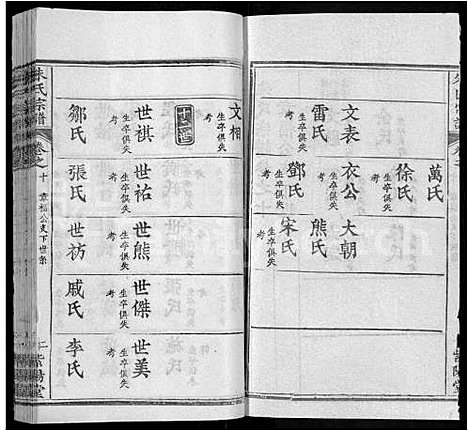 萬氏
徐氏
生卒俱失考
文表
衣公
大朝
雷氏
生卒俱失考
熊氏
鄧氏
生卒俱失考
宋氏
生卒俱失考
文相
生卒俱失考
世祺
生卒俱失考
鄒氏
世祐
生卒俱失考
張氏
世熊
生卒俱失考
世祊
世傑
生卒俱失考
戚氏
世美
生卒俱失考
李氏
朱氏宗譜
卷之十
章福公支下世系
二
紫陽堂